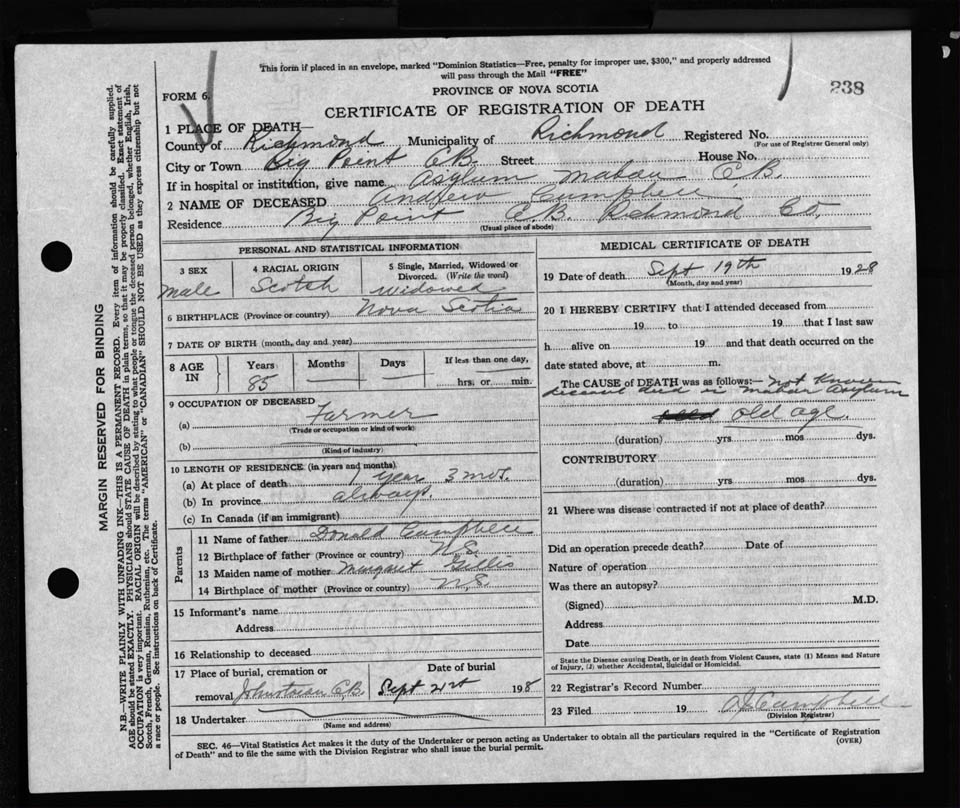 This form if placed in an envelope, marked "Dominion Statistics—Free, penalty for improper use, $300," and properly addressed
will pass through the Mail "FREE"
PROVINCE OF NOVA SCOTIA
238
FORM 6.
CERTIFICATE OF REGISTRATION OF DEATH
1 PLACE OF DEATH—
County of Richmond Municipality of Richmond Registered No.
(For use of Registrar General only)
City or Town Big Point C.B. Street House No.
If in hospital or institution, give name Asylum Mabou C.B.
2 NAME OF DECEASED Andrew Campbell
Residence Big Point C.B. Richmond Co.
(Usual place of abode)
PERSONAL AND STATISTICAL INFORMATION
3 SEX
4 RACIAL ORIGIN
5 Single, Married, Widowed or
Divorced. (Write the word)
male Scotch widowed
6 BIRTHPLACE (Province or country) Nova Scotia
7 DATE OF BIRTH (month, day and year)
8 AGE IN
Years Months Days If less than one day,
85 hrs. or min.
9 OCCUPATION OF DECEASED
(a) Farmer
(Trade or occupation or kind of work)
(b)
(Kind of industry)
10 LENGTH OF RESIDENCE (in years and months)
(a) At place of death 1 year 3 mos.
(b) In province always.
(c) In Canada (if an immigrant)
Parents
11 Name of father Donald Campbell
12 Birthplace of father (Province or country) N.S.
13 Maiden name of mother Margaret Gillis
14 Birthplace of mother (Province or country) N.S.
15 Informant's name
Address
16 Relationship to deceased
17 Place of burial, cremation or Date of burial
removal Johnstown C.B. Sept 21st 198
18 Undertaker
(Name and address)
MEDICAL CERTIFICATE OF DEATH
19 Date of death Sept 19th 1928
(Month, day and year)
20 I HEREBY CERTIFY that I attended deceased from
19 to 19 that I last saw
h alive on 19 and that death occurred on the
date stated above, at m.
The CAUSE of DEATH was as follows:— not known
deceased died in Mabou Asylum
old age
(duration) yrs mos dys.
CONTRIBUTORY
(duration) yrs mos dys.
21 Where was disease contracted if not at place of death?
Did an operation precede death? Date of
Nature of operation
Was there an autopsy?
(Signed) M.D.
Address
Date
State the Disease causing Death, or in death from Violent Causes, state (1) Means and Nature
of Injury, (2) whether Accidental, Suicidal or Homicidal.
22 Registrar's Record Number
23 Filed 19 Campbell
(Division Registrar)
SEC. 46—Vital Statistics Act makes it the duty of the Undertaker or person acting as Undertaker to obtain all the particulars required in the "Certificate of Registration
of Death" and to file the same with the Division Registrar who shall issue the burial permit. (OVER)
MARGIN RESERVED FOR BINDING
N.B.—WRITE PLAINLY WITH UNFADING INK—THIS IS A PERMANENT RECORD. Every item of information should be carefully supplied.
AGE should be stated EXACTLY. PHYSICIANS should STATE CAUSE OF DEATH in plain terms, so that it may be properly classified. Exact statement of
OCCUPATION is very important. RACIAL ORIGIN will be described by stating to what people or tongue the deceased person belonged, whether English, Irish,
Scotch, French, German, Russian, Ruthenian, etc. The terms "AMERICAN" or "CANADIAN" SHOULD NOT BE USED as they express citizenship but not
a race or people. See instructions on back of Certificate.